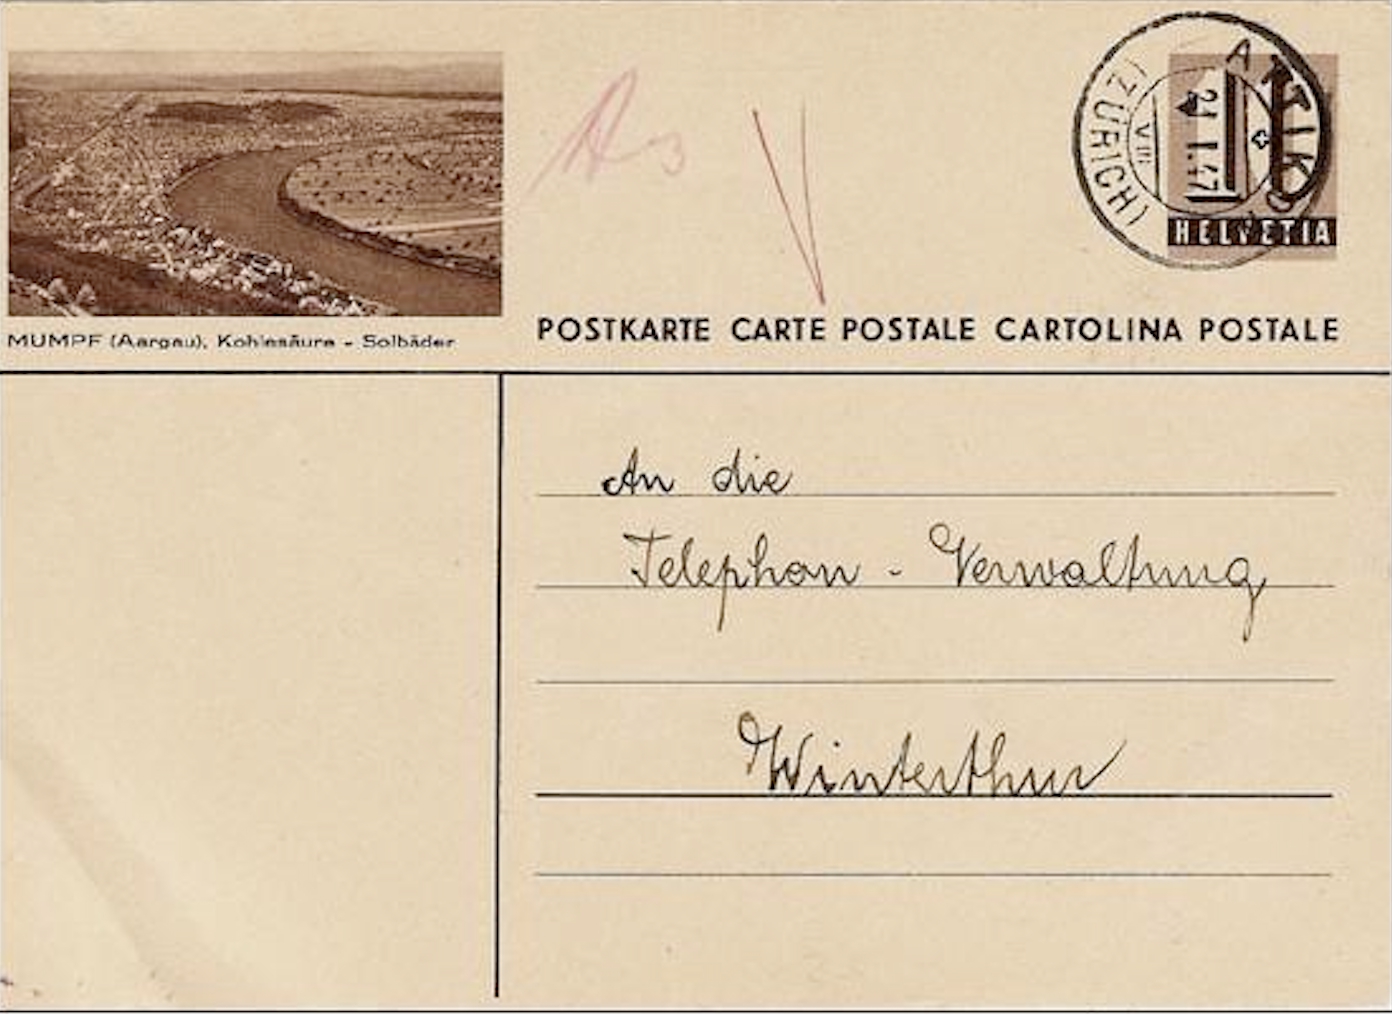 MUMPF (Aargau), Kohlesäure - Solbäder
ATTIKON
(ZÜRICH)
24.I.47
VIII
10
HELVETIA
POSTKARTE CARTE POSTALE CARTOLINA POSTALE
An die
Telephon - Verwaltung
Winterthur